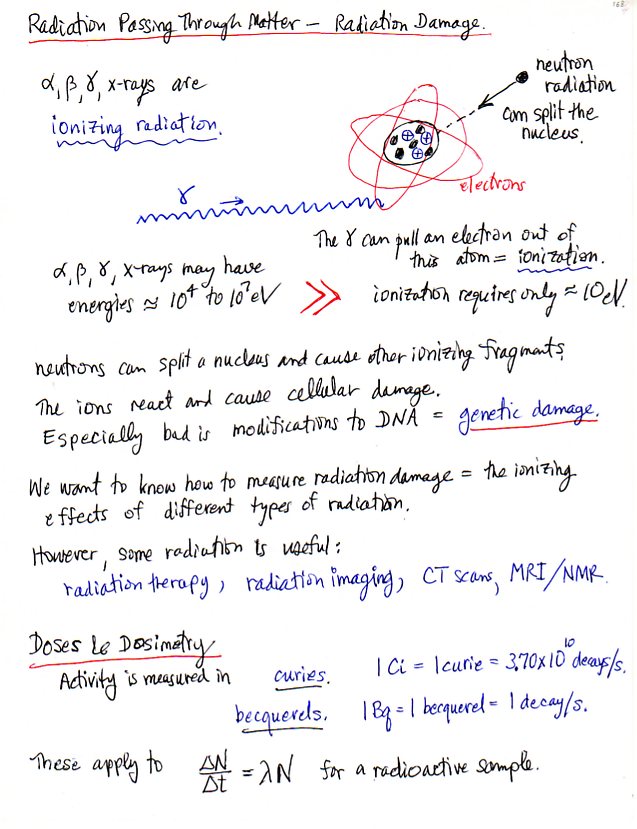 168
Radiation Passing Through Matter — Radiation Damage.
α, β, γ, x-rays are
ionizing radiation.
neutron
radiation
can split the
nucleus.
electrons
γ
The γ can pull an electron out of
this atom = ionization.
α, β, γ, x-rays may have
energies ≈ 10⁴ to 10⁷ eV >> ionization requires only ≈ 10 eV.
neutrons can split a nucleus and cause other ionizing fragments.
The ions react and cause cellular damage.
Especially bad is modifications to DNA = genetic damage.
We want to know how to measure radiation damage = the ionizing
effects of different types of radiation.
However, some radiation is useful:
radiation therapy, radiation imaging, CT scans, MRI/NMR.
Doses & Dosimetry
Activity is measured in curies. 1 Ci = 1 curie = 3.70x10¹⁰ decays/s.
becquerels. 1 Bq = 1 becquerel = 1 decay/s.
These apply to ΔN/Δt = λN for a radioactive sample.